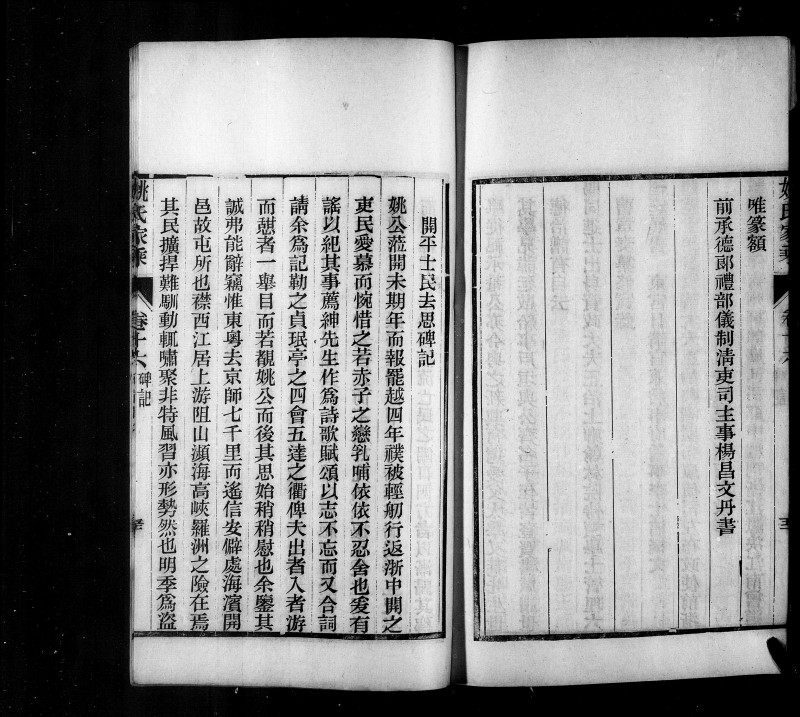 唯篆額
前承德郎禮部儀制淸吏司主事楊昌文丹書
開平士民去思碑記
姚公蒞開未期年而報罷越四年襆被輕舠行返浙中開之
吏民愛慕而惋惜之若赤子之戀乳哺依依不忍舍也爰有
謠以紀其事薦紳先生作爲詩歌賦頌以志不忘而又合詞
請余爲記勒之貞珉亭之四會五達之衢俾夫出者入者游
而憇者一舉目而若覩姚公而後其思始稍稍慰也余鑒其
誠弗能辭竊惟東粵去京師七千里而遙信安僻處海濱開
邑故屯所也襟西江居上游阻山瀕海高峽羅洲之險在焉
其民獷捍難馴動輒嘯聚非特風習亦形勢然也明季爲盜
姚氏家乘
卷十六
碑記